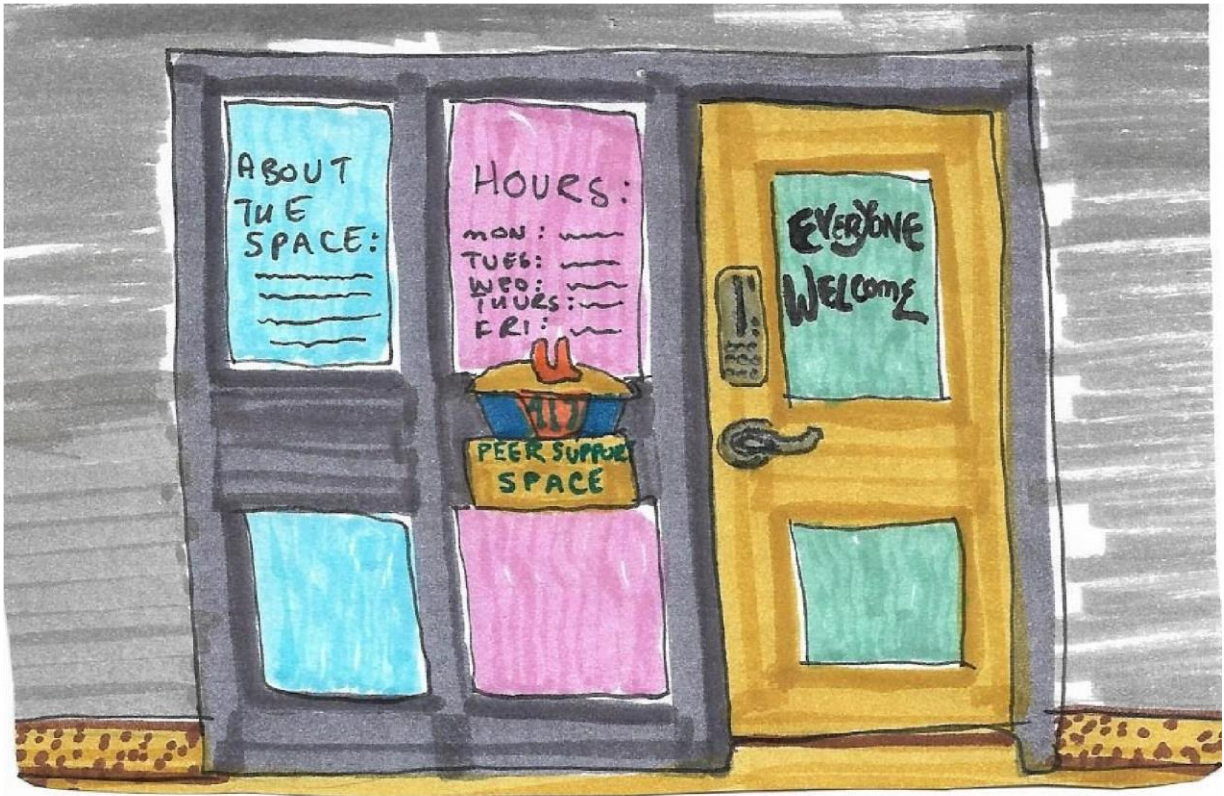 ABOUT
THE
SPACE:
HOURS:
MON:
TUES:
WED:
THURS:
FRI:
PEER SUPPORT
SPACE
EVERYONE
WELCOME